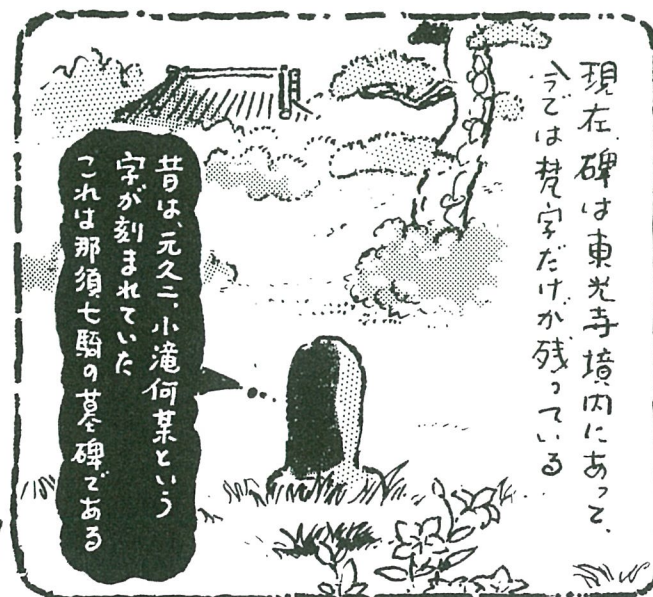 現在、碑は東光寺境内にあって、
今では梵字だけが残っている
昔は、元久二、小滝何某という
字が刻まれていた
これは那須七騎の墓碑である